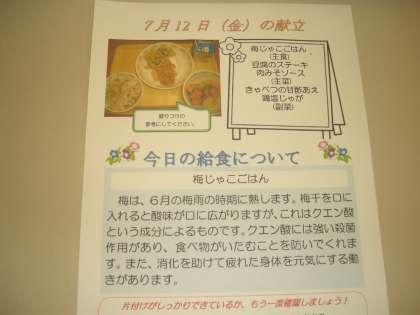 7月12日（金）の献立
梅じゃこごはん
（主食）
豆腐のステーキ
肉みそソース
（主菜）
きゃべつの甘酢あえ
鶏塩じゃが
（副菜）
盛りつけの
参考にしてください。
今日の給食について
梅じゃこごはん
梅は、6月の梅雨の時期に熟します。梅干を口に
入れると酸味が口に広がりますが、これはクエン酸
という成分によるものです。クエン酸には強い殺菌
作用があり、食べ物がいたむことを防いでくれま
す。また、消化を助けて疲れた身体を元気にする働
きがあります。
片付けがしっかりできているか、もう一度確認しましょう！